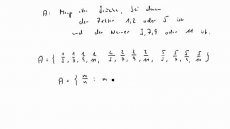 A: Menge der Brüche, bei denen
der Zähler 1, 2 oder 5 ist
und der Nenner 3, 7, 9 oder 11 ist.
A = { 1/3, 1/7, 1/9, 1/11, 2/3, 2/7, 2/9, 2/11, 5/3, 5/7, 5/9, 5/11 }
A = { m/n : m